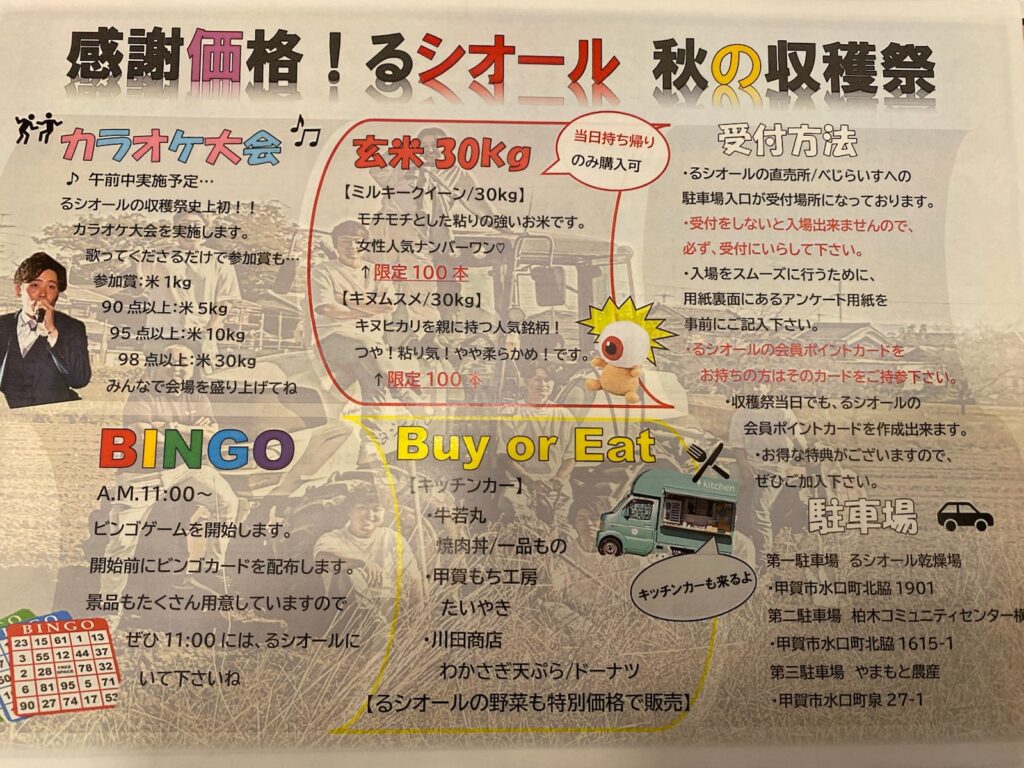 感謝価格！るシオール 秋の収穫祭
カラオケ大会
♪ 午前中実施予定…
るシオールの収穫祭史上初！！
カラオケ大会を実施します。
歌ってくださるだけで参加賞も…
参加賞：米 1kg
90 点以上：米 5kg
95 点以上：米 10kg
98 点以上：米 30kg
みんなで会場を盛り上げてね
玄米 30kg
当日持ち帰り
のみ購入可
【ミルキークイーン/30kg】
モチモチとした粘りの強いお米です。
女性人気ナンバーワン♡
↑限定 100 本
【キヌムスメ/30kg】
キヌヒカリを親に持つ人気銘柄！
つや！粘り気！やや柔らかめ！です。
↑限定 100 本
受付方法
・るシオールの直売所/べじらいすへの
駐車場入口が受付場所になっております。
・受付をしないと入場出来ませんので、
必ず、受付にいらして下さい。
・入場をスムーズに行うために、
用紙裏面にあるアンケート用紙を
事前にご記入下さい。
・るシオールの会員ポイントカードを
お持ちの方はそのカードをご持参下さい。
・収穫祭当日でも、るシオールの
会員ポイントカードを作成出来ます。
・お得な特典がございますので、
ぜひご加入下さい。
BINGO
A.M.11:00～
ビンゴゲームを開始します。
開始前にビンゴカードを配布します。
景品もたくさん用意していますので
ぜひ 11:00 には、るシオールに
いて下さいね
BINGO
23 15 61 1 13
3 55 12 44 37
2 28 FREE SPACE 78 32
6 81 95 5 71
90 27 74 17 53
Buy or Eat
【キッチンカー】
・牛若丸
焼肉丼/一品もの
・甲賀もち工房
たいやき
・川田商店
わかさぎ天ぷら/ドーナツ
【るシオールの野菜も特別価格で販売】
kitchen
キッチンカーも来るよ
駐車場
第一駐車場 るシオール乾燥場
・甲賀市水口町北脇 1901
第二駐車場 柏木コミュニティセンター横
・甲賀市水口町北脇 1615-1
第三駐車場 やまもと農産
・甲賀市水口町泉 27-1